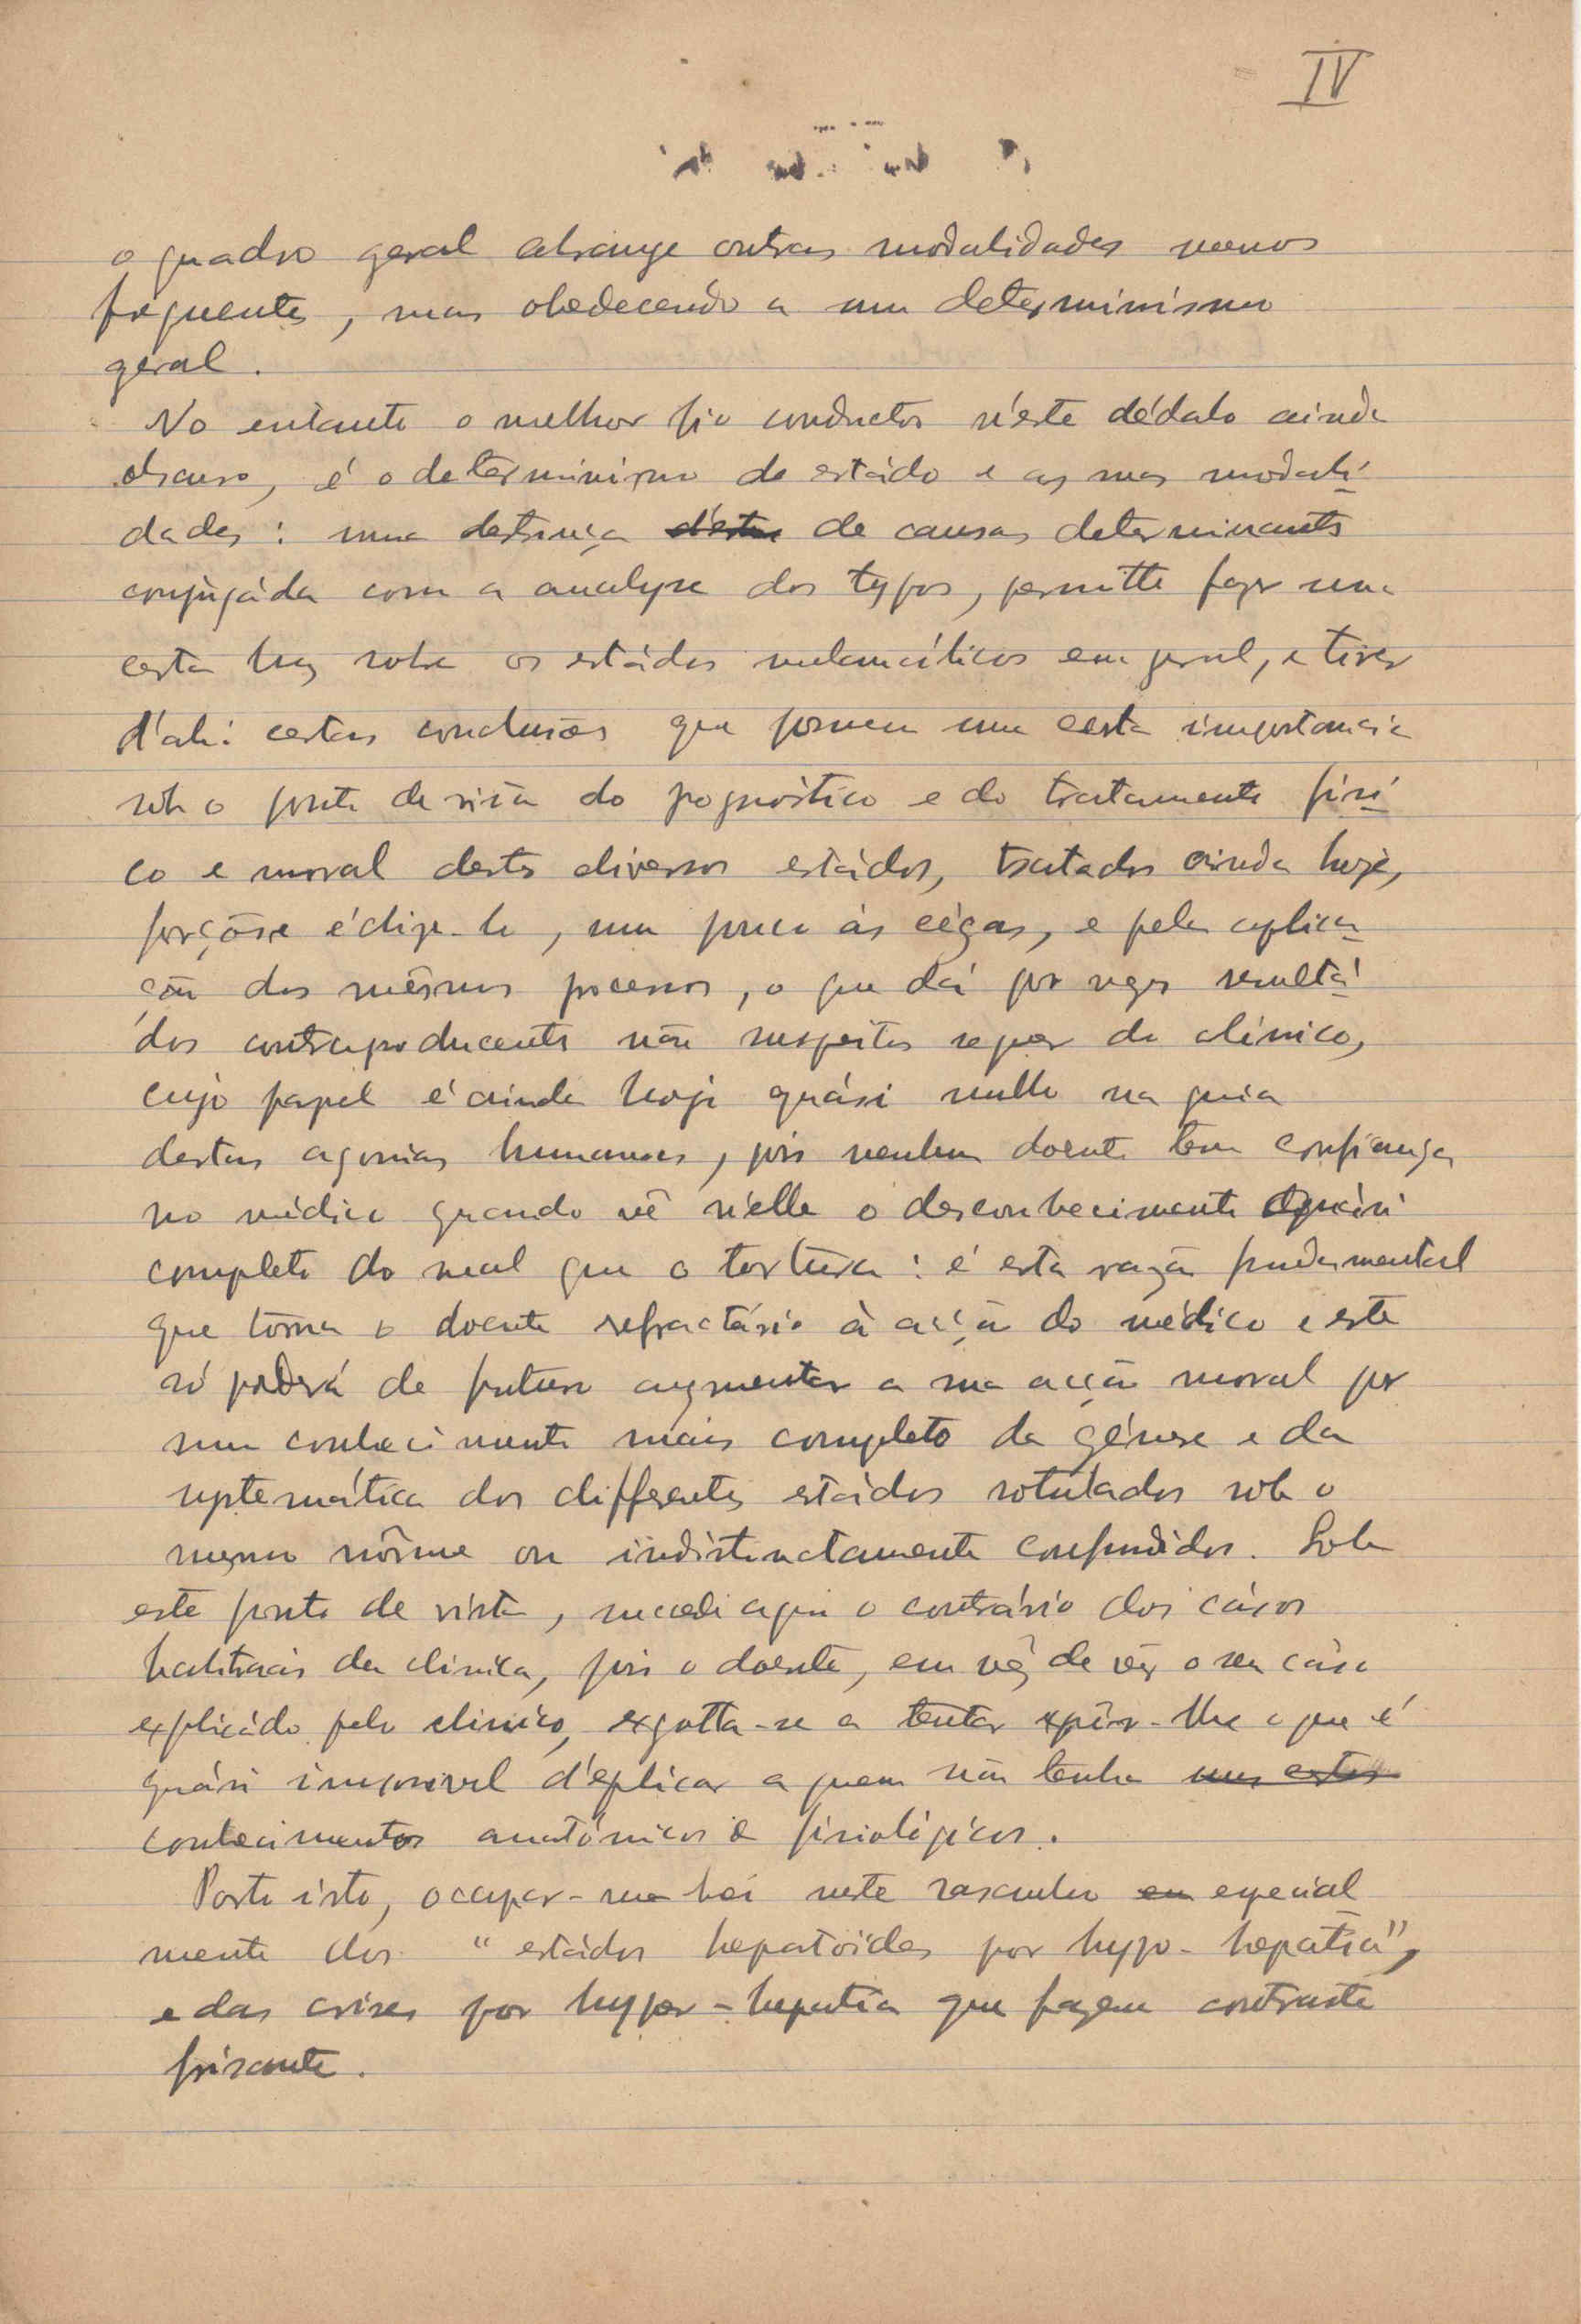 IV
o quadro geral abrange outras modalidades menos
frequentes, mas obedecendo a um determinismo
geral.
No entanto o melhor fio conductor n'este dédalo ainda
obscuro, é o determinismo do estádo e as suas modali-
dades: uma destrinça d'estas de causas determinantes
conjugáda com a analyse dos typos, permitte fazer uma
certa luz sobre os estádos melancólicos em geral, e tirar
d'ahi certas conclusões que formem uma certa importancia
sob o ponto de vista do pognóstico e do tratamento fisi-
co e moral destes diversos estádos, tratados ainda hoje,
forçôso é dize-lo, um pouco ás cégas, e pela aplica-
ção dos mêsmos processos, o que dá por vezes resultá-
dos contraproducentes não suspeitos sequer do clinico,
cujo papel é ainda hoje quási nullo na guia
destas agonias humanas, pois nenhum doente tem confiança
no médico quando vê n'elle o desconhecimento quási
completo do mal que o tortúra: é esta razão fundamental
que tórna o doente refractário à acção do médico e este
só poderá de futuro augmentar a sua acção moral por
um conhecimento mais completo da génese e da
systemática dos differentes estádos rotulados sob o
mesmo nôme ou indistinctamente confundidos. Sob
este ponto de vista, succede aqui o contrário dos cásos
habituais da clinica, pois o doente, em vêz de vêr o seu cáso
explicádo pelo clinico, exgotta-se a tentar expôr-lhe o que é
quási impossivel d'explicar a quem não tenha
conhecimentos anatómicos e fisiológicos.
Posto isto, occupar-me hei neste rascunho em especial
mente dos "estádos hepatoides por hypo-hepatía",
e das crises por hyper-hepatia que fazem contraste
frisante.